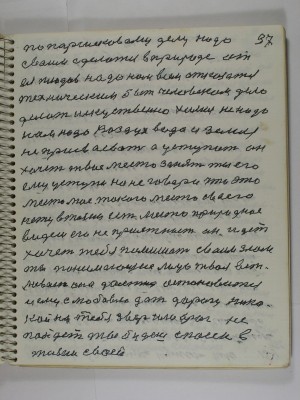 по паршековаму делу надо 97
своим сделатся в природе от
ея плодов надо нам всем отказатся
техническим быт человеком дело
делат искуственно химия не надо
нам надо Воздух вода и Земля
не присваеват а уступат он
хочет твое место занят ты его
ему уступи но не говори что это
место мое такого место своего
нету в твоем ест место природное
видем его не
хочет тебя помешат своим злом
ты понимающие лицо твоя веж
ливаст она должна остановится
и ему с любовю дат дарогу нико
кой на тебя звер или враг не
пойдет ты будеш спасен в
жизни своей